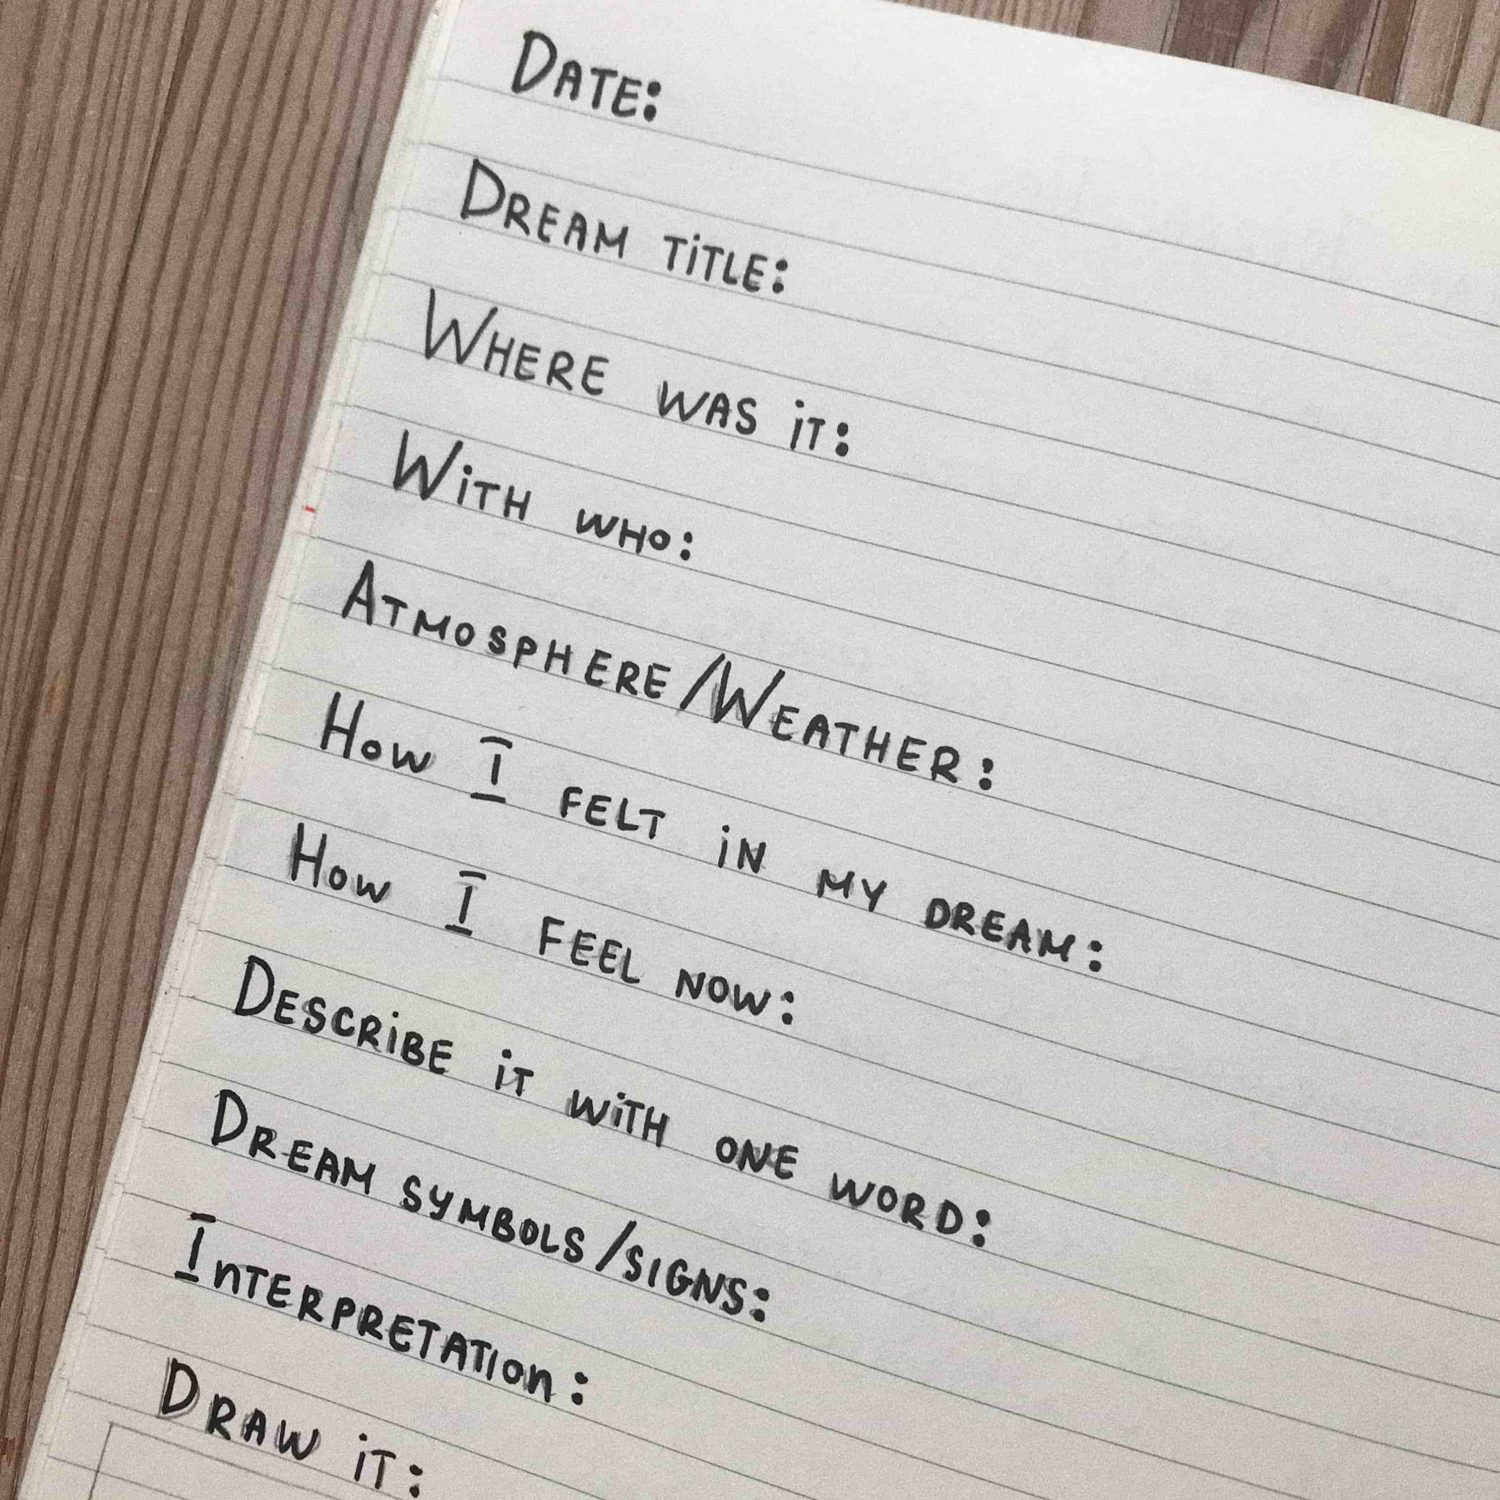 DATE:
DREAM TITLE:
WHERE WAS IT:
WITH WHO:
ATMOSPHERE/WEATHER:
HOW I FELT IN MY DREAM:
HOW I FEEL NOW:
DESCRIBE IT WITH ONE WORD:
DREAM SYMBOLS/SIGNS:
INTERPRETATION:
DRAW IT: